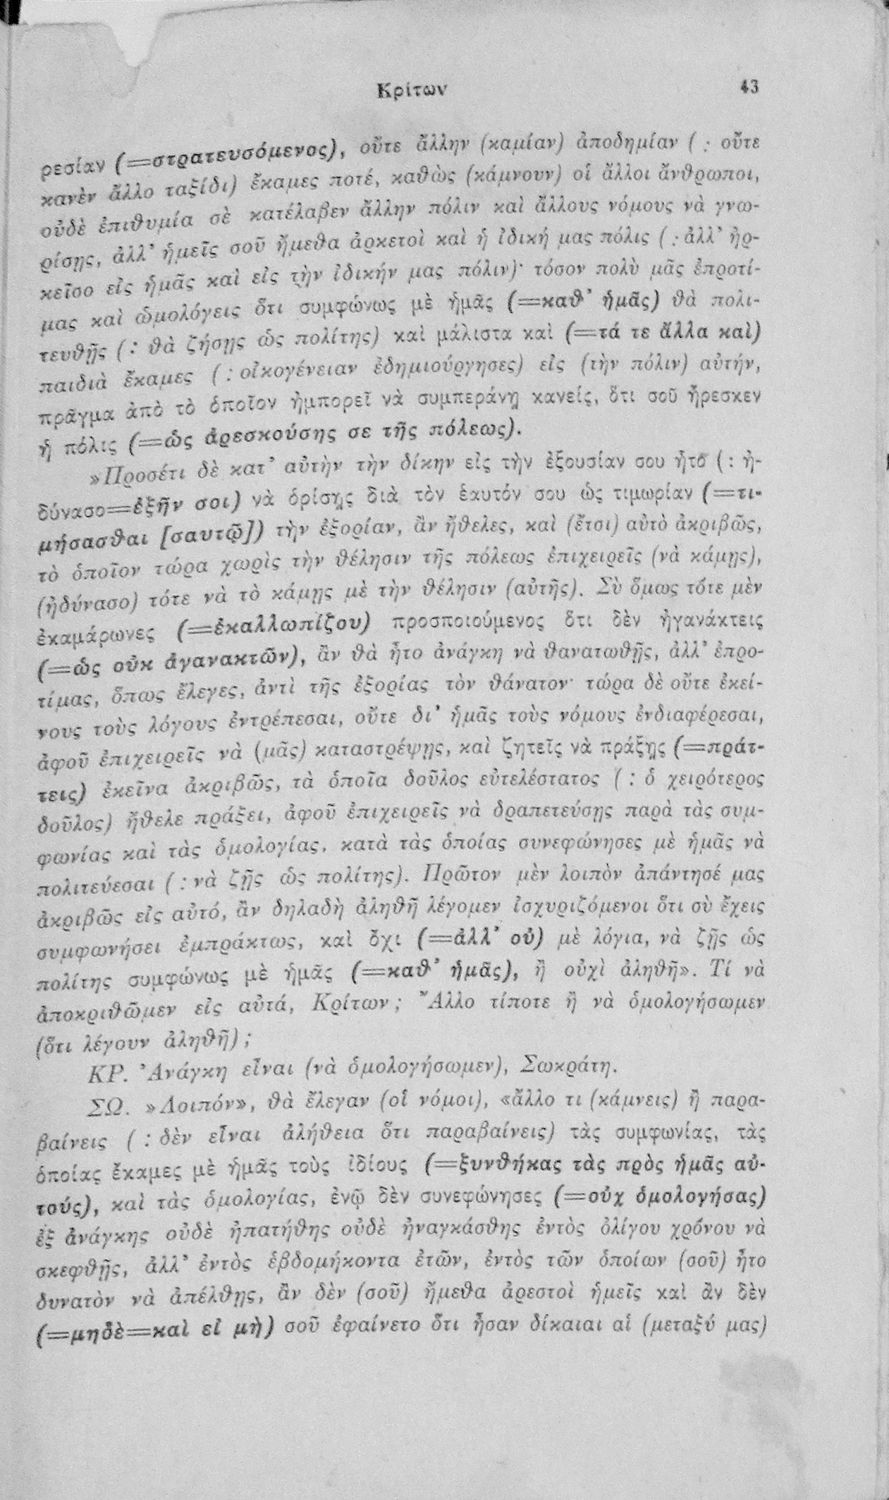 Κρίτων 43
ρεσίαν (=στρατευσόμενος), οὔτε ἄλλην (καμίαν) ἀποδημίαν ( : οὔτε
κανὲν ἄλλο ταξίδι) ἔκαμες ποτέ, καθὼς (κάμνουν) οἱ ἄλλοι ἄνθρωποι,
οὐδὲ ἐπιθυμία σὲ κατέλαβεν ἄλλην πόλιν καὶ ἄλλους νόμους νὰ γνω-
ρίσῃς, ἀλλ' ἡμεῖς σοῦ ἤμεθα ἀρκετοὶ καὶ ἡ ἰδική μας πόλις ( : ἀλλ' ἠρ-
κεῖσο εἰς ἡμᾶς καὶ εἰς τὴν ἰδικήν μας πόλιν)· τόσον πολὺ μᾶς ἐπροτί-
μας καὶ ὡμολόγεις ὅτι συμφώνως μὲ ἡμᾶς (=καθ' ἡμᾶς) θὰ πολι-
τευθῇς (: θὰ ζήσῃς ὡς πολίτης) καὶ μάλιστα καὶ (=τά τε ἄλλα καὶ)
παιδιὰ ἔκαμες ( : οἰκογένειαν ἐδημιούργησες) εἰς (τὴν πόλιν) αὐτήν,
πρᾶγμα ἀπὸ τὸ ὁποῖον ἠμπορεῖ νὰ συμπεράνῃ κανείς, ὅτι σοῦ ἤρεσκεν
ἡ πόλις (=ὡς ἀρεσκούσης σε τῆς πόλεως).
»Προσέτι δὲ κατ' αὐτὴν τὴν δίκην εἰς τὴν ἐξουσίαν σου ἦτο (: ἠ-
δύνασο=ἐξῆν σοι) νὰ ὁρίσῃς διὰ τὸν ἑαυτόν σου ὡς τιμωρίαν (=τι-
μήσασθαι [σαυτῷ]) τὴν ἐξορίαν, ἂν ἤθελες, καὶ (ἔτσι) αὐτὸ ἀκριβῶς,
τὸ ὁποῖον τώρα χωρὶς τὴν θέλησιν τῆς πόλεως ἐπιχειρεῖς (νὰ κάμῃς),
(ἠδύνασο) τότε νὰ τὸ κάμῃς μὲ τὴν θέλησιν (αὐτῆς). Σὺ ὅμως τότε μὲν
ἐκαμάρωνες (=ἐκαλλωπίζου) προσποιούμενος ὅτι δὲν ἠγανάκτεις
(=ὡς οὐκ ἀγανακτῶν), ἂν θὰ ἦτο ἀνάγκη νὰ θανατωθῇς, ἀλλ' ἐπρο-
τίμας, ὅπως ἔλεγες, ἀντὶ τῆς ἐξορίας τὸν θάνατον· τώρα δὲ οὔτε ἐκεί-
νους τοὺς λόγους ἐντρέπεσαι, οὔτε δι' ἡμᾶς τοὺς νόμους ἐνδιαφέρεσαι,
ἀφοῦ ἐπιχειρεῖς νὰ (μᾶς) καταστρέψῃς, καὶ ζητεῖς νὰ πράξῃς (=πράτ-
τεις) ἐκεῖνα ἀκριβῶς, τὰ ὁποῖα δοῦλος εὐτελέστατος ( : ὁ χειρότερος
δοῦλος) ἤθελε πράξει, ἀφοῦ ἐπιχειρεῖς νὰ δραπετεύσῃς παρὰ τὰς συμ-
φωνίας καὶ τὰς ὁμολογίας, κατὰ τὰς ὁποίας συνεφώνησες μὲ ἡμᾶς νὰ
πολιτεύεσαι ( : νὰ ζῇς ὡς πολίτης). Πρῶτον μὲν λοιπὸν ἀπάντησέ μας
ἀκριβῶς εἰς αὐτό, ἂν δηλαδὴ ἀληθῆ λέγομεν ἰσχυριζόμενοι ὅτι σὺ ἔχεις
συμφωνήσει ἐμπράκτως, καὶ ὄχι (=ἀλλ' οὐ) μὲ λόγια, νὰ ζῇς ὡς
πολίτης συμφώνως μὲ ἡμᾶς (=καθ' ἡμᾶς), ἢ οὐχὶ ἀληθῆ». Τί νὰ
ἀποκριθῶμεν εἰς αὐτά, Κρίτων ; Ἄλλο τίποτε ἢ νὰ ὁμολογήσωμεν
(ὅτι λέγουν ἀληθῆ) ;
ΚΡ. Ἀνάγκη εἶναι (νὰ ὁμολογήσωμεν), Σωκράτη.
ΣΩ. »Λοιπόν», θὰ ἔλεγαν (οἱ νόμοι), «ἄλλο τι (κάμνεις) ἢ παρα-
βαίνεις ( : δὲν εἶναι ἀλήθεια ὅτι παραβαίνεις) τὰς συμφωνίας, τὰς
ὁποίας ἔκαμες μὲ ἡμᾶς τοὺς ἰδίους (=ξυνθήκας τὰς πρὸς ἡμᾶς αὐ-
τούς), καὶ τὰς ὁμολογίας, ἐνῷ δὲν συνεφώνησες (=οὐχ ὁμολογήσας)
ἐξ ἀνάγκης οὐδὲ ἠπατήθης οὐδὲ ἠναγκάσθης ἐντὸς ὀλίγου χρόνου νὰ
σκεφθῇς, ἀλλ' ἐντὸς ἑβδομήκοντα ἐτῶν, ἐντὸς τῶν ὁποίων (σοῦ) ἦτο
δυνατὸν νὰ ἀπέλθῃς, ἂν δὲν (σοῦ) ἤμεθα ἀρεστοὶ ἡμεῖς καὶ ἂν δὲν
(=μηδὲ=καὶ εἰ μὴ) σοῦ ἐφαίνετο ὅτι ἦσαν δίκαιαι αἱ (μεταξύ μας)